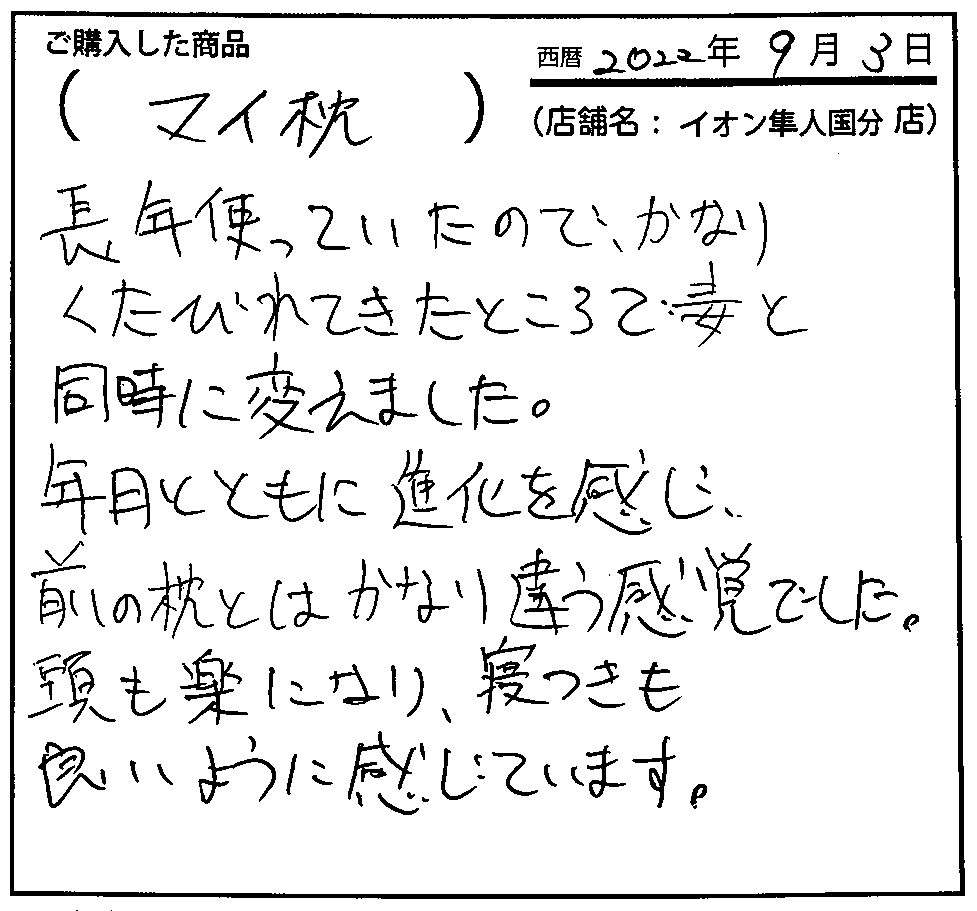 ご購入した商品
西暦 2022年 9月 3日
( マイ枕 )
(店舗名: イオン隼人国分 店)
長年使っていたので、かなり
くたびれてきたところで妻と
同時に変えました。
年月とともに進化を感じ、
前の枕とはかなり違う感覚でした。
頭も楽になり、寝つきも
良いように感じています。